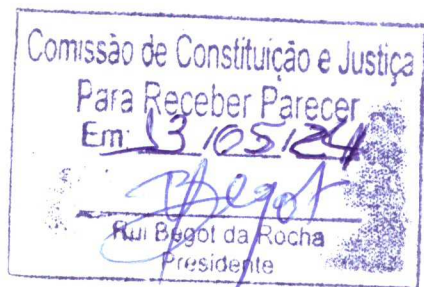 Comissão de Constituição e Justiça
Para Receber Parecer
Em: 13/05/24
Begot
Rui Begot da Rocha
Presidente